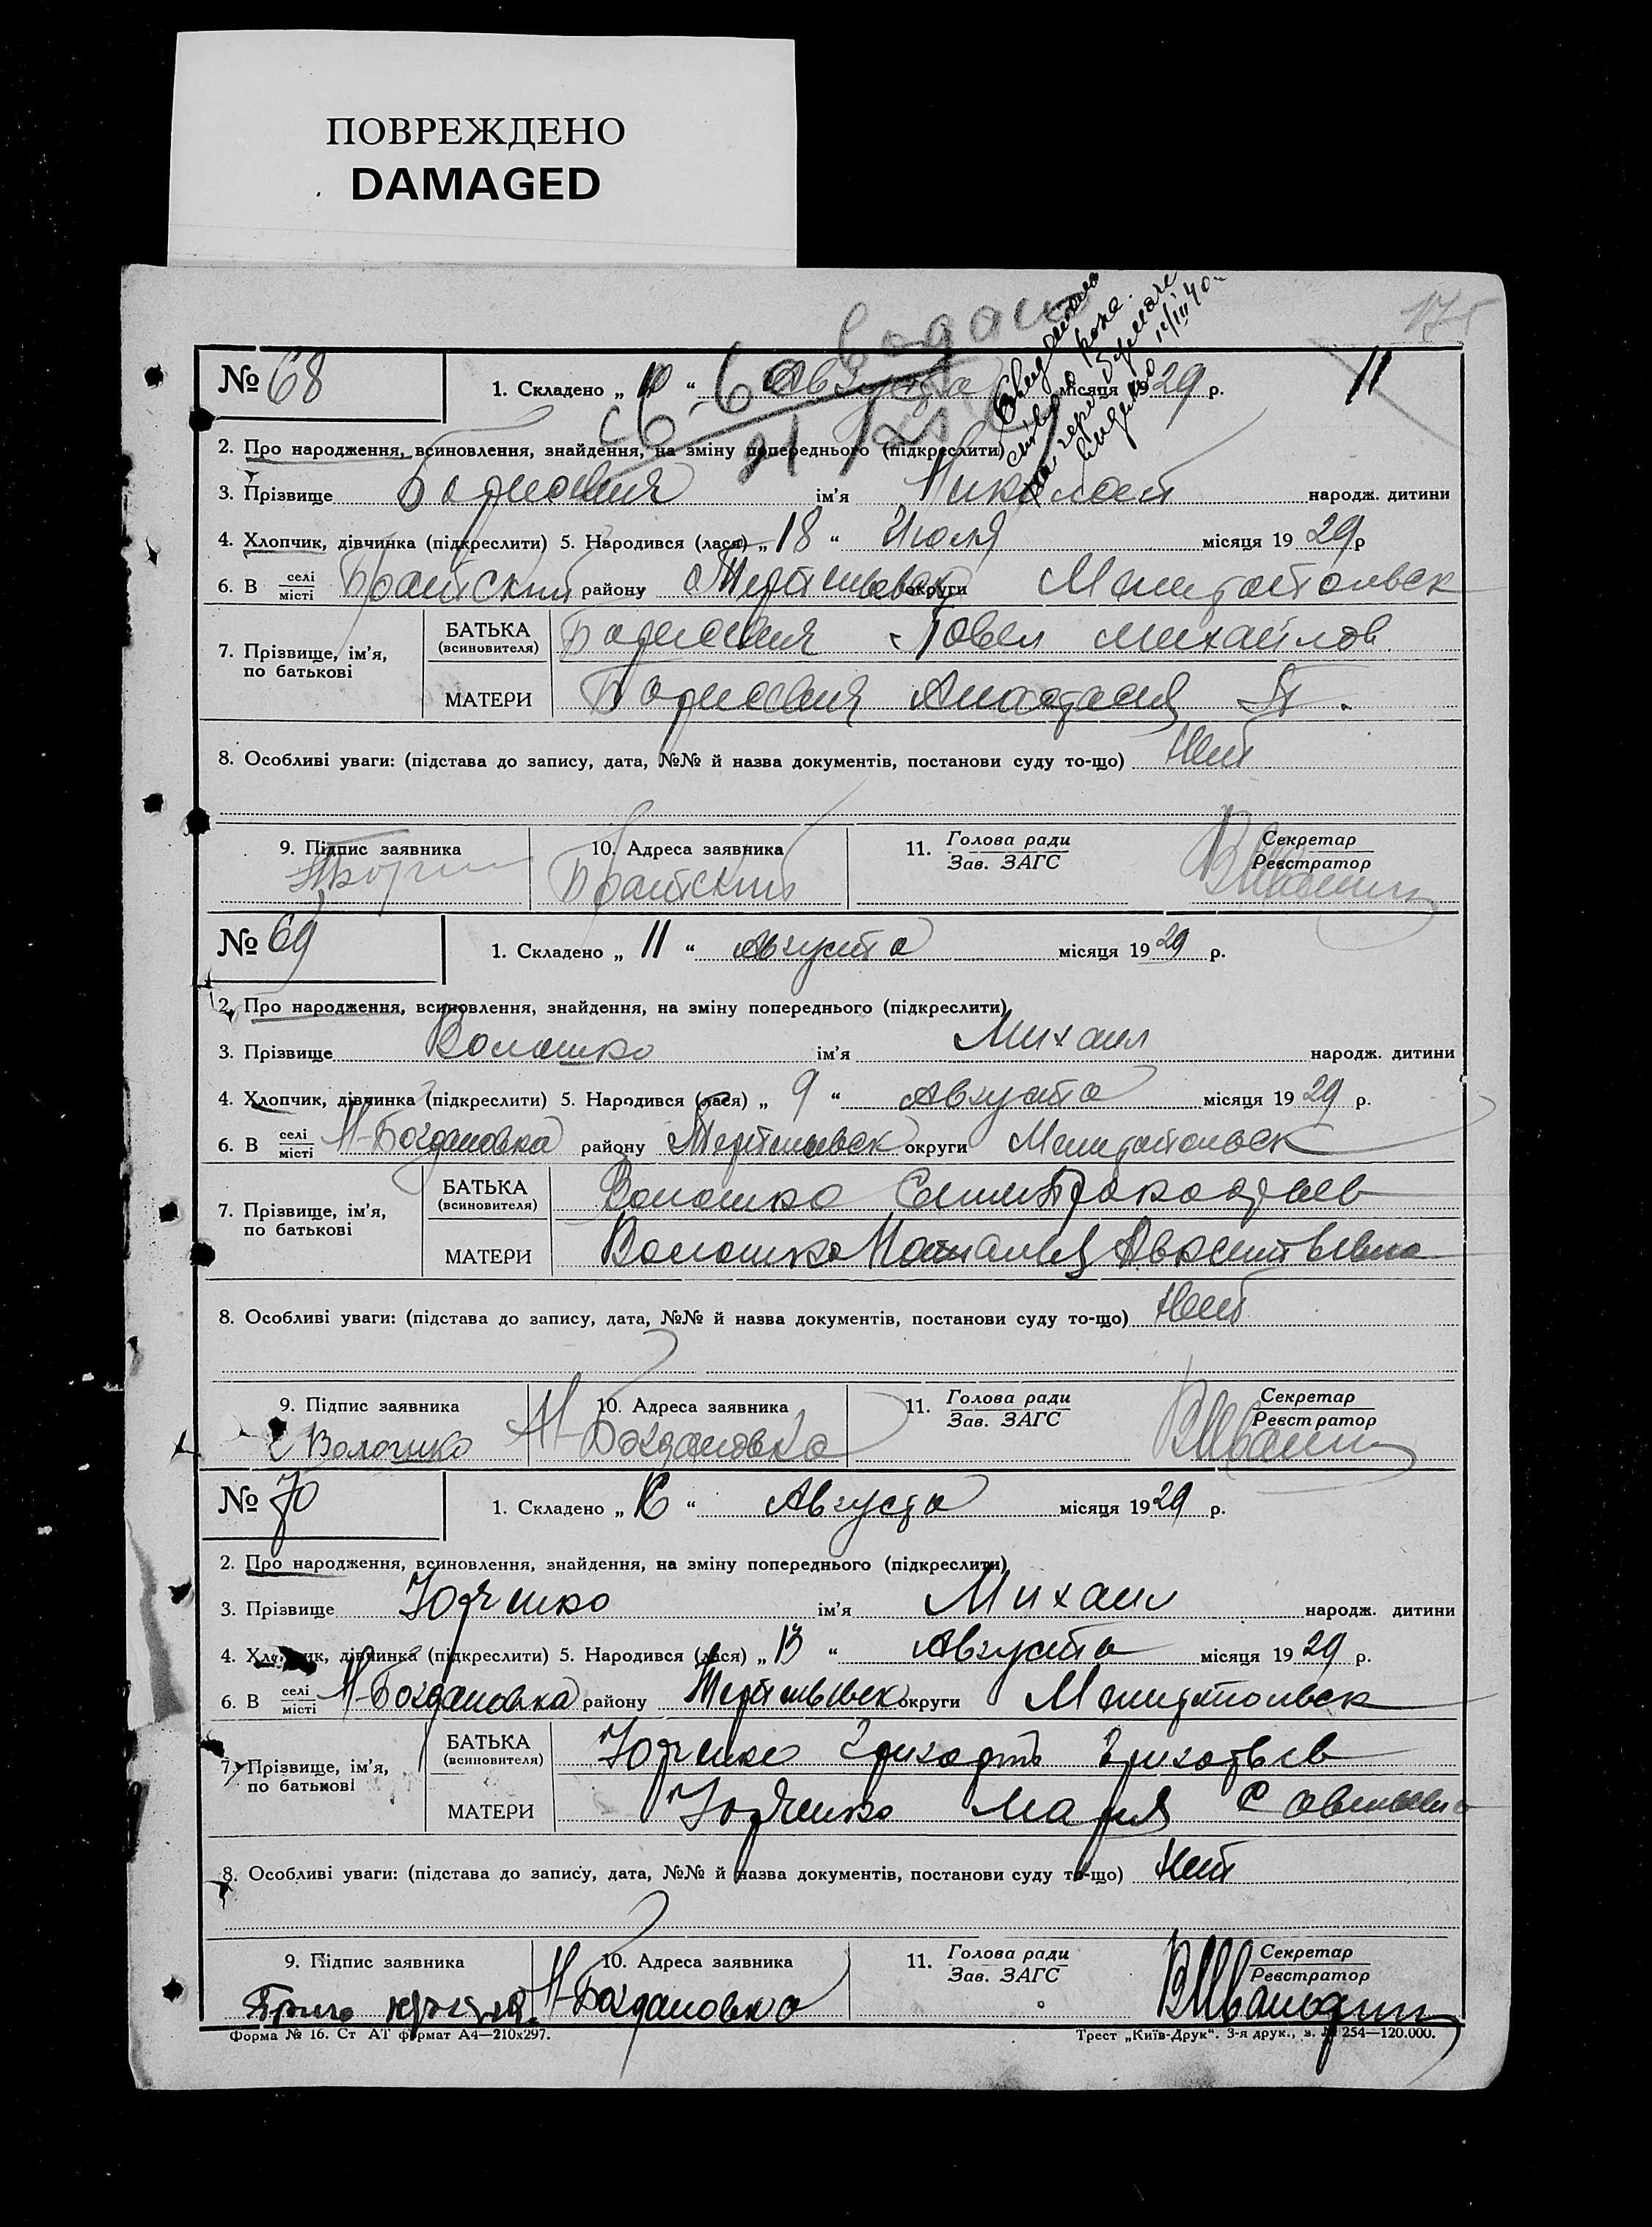 ПОВРЕЖДЕНО
DAMAGED
175
№ 68 1. Складено „ 10 “ Августа місяця 1929 р. 11
2. Про народження, всиновлення, знайдення, на зміну попереднього (підкреслити)
3. Прізвище ім'я Николай народж. дитини
4. Хлопчик, дівчинка (підкреслити) 5. Народився (лася) „ 18 “ Июля місяця 19 29 р
6. В селі місті Братский району округи Мелитопольск
7. Прізвище, ім'я, по батькові БАТЬКА (всиновителя) Павел Михайлов
МАТЕРИ Анастасия
8. Особливі уваги: (підстава до запису, дата, №№ й назва документів, постанови суду то-що) Нет
9. Підпис заявника 10. Адреса заявника Братский 11. Голова ради Зав. ЗАГС Секретар Реєстратор
№ 69 1. Складено „ 11 “ Августа місяця 19 29 р.
2. Про народження, всиновлення, знайдення, на зміну попереднього (підкреслити)
3. Прізвище Волошко ім'я Михаил народж. дитини
4. Хлопчик, дівчинка (підкреслити) 5. Народився (лася) „ 9 “ Августа місяця 19 29 р.
6. В селі місті М-Богдановка району округи Мелитопольск
7. Прізвище, ім'я, по батькові БАТЬКА (всиновителя) Волошко
МАТЕРИ Волошко Наталия
8. Особливі уваги: (підстава до запису, дата, №№ й назва документів, постанови суду то-що) Нет
9. Підпис заявника Волошко 10. Адреса заявника М-Богдановка 11. Голова ради Зав. ЗАГС Секретар Реєстратор
№ 70 1. Складено „ “ Августа місяця 1929 р.
2. Про народження, всиновлення, знайдення, на зміну попереднього (підкреслити)
3. Прізвище Юрченко ім'я Михаил народж. дитини
4. Хлопчик, дівчинка (підкреслити) 5. Народився (лася) „ 13 “ Августа місяця 19 29 р.
6. В селі місті М-Богдановка району округи Мелитопольск
7. Прізвище, ім'я, по батькові БАТЬКА (всиновителя) Юрченко
МАТЕРИ Юрченко Мария
8. Особливі уваги: (підстава до запису, дата, №№ й назва документів, постанови суду то-що) Нет
9. Підпис заявника 10. Адреса заявника М-Богдановка 11. Голова ради Зав. ЗАГС Секретар Реєстратор
Форма № 16. Ст АТ формат А4—210х297. Трест „Київ-Друк“. 3-я друк., з. № 254—120.000.